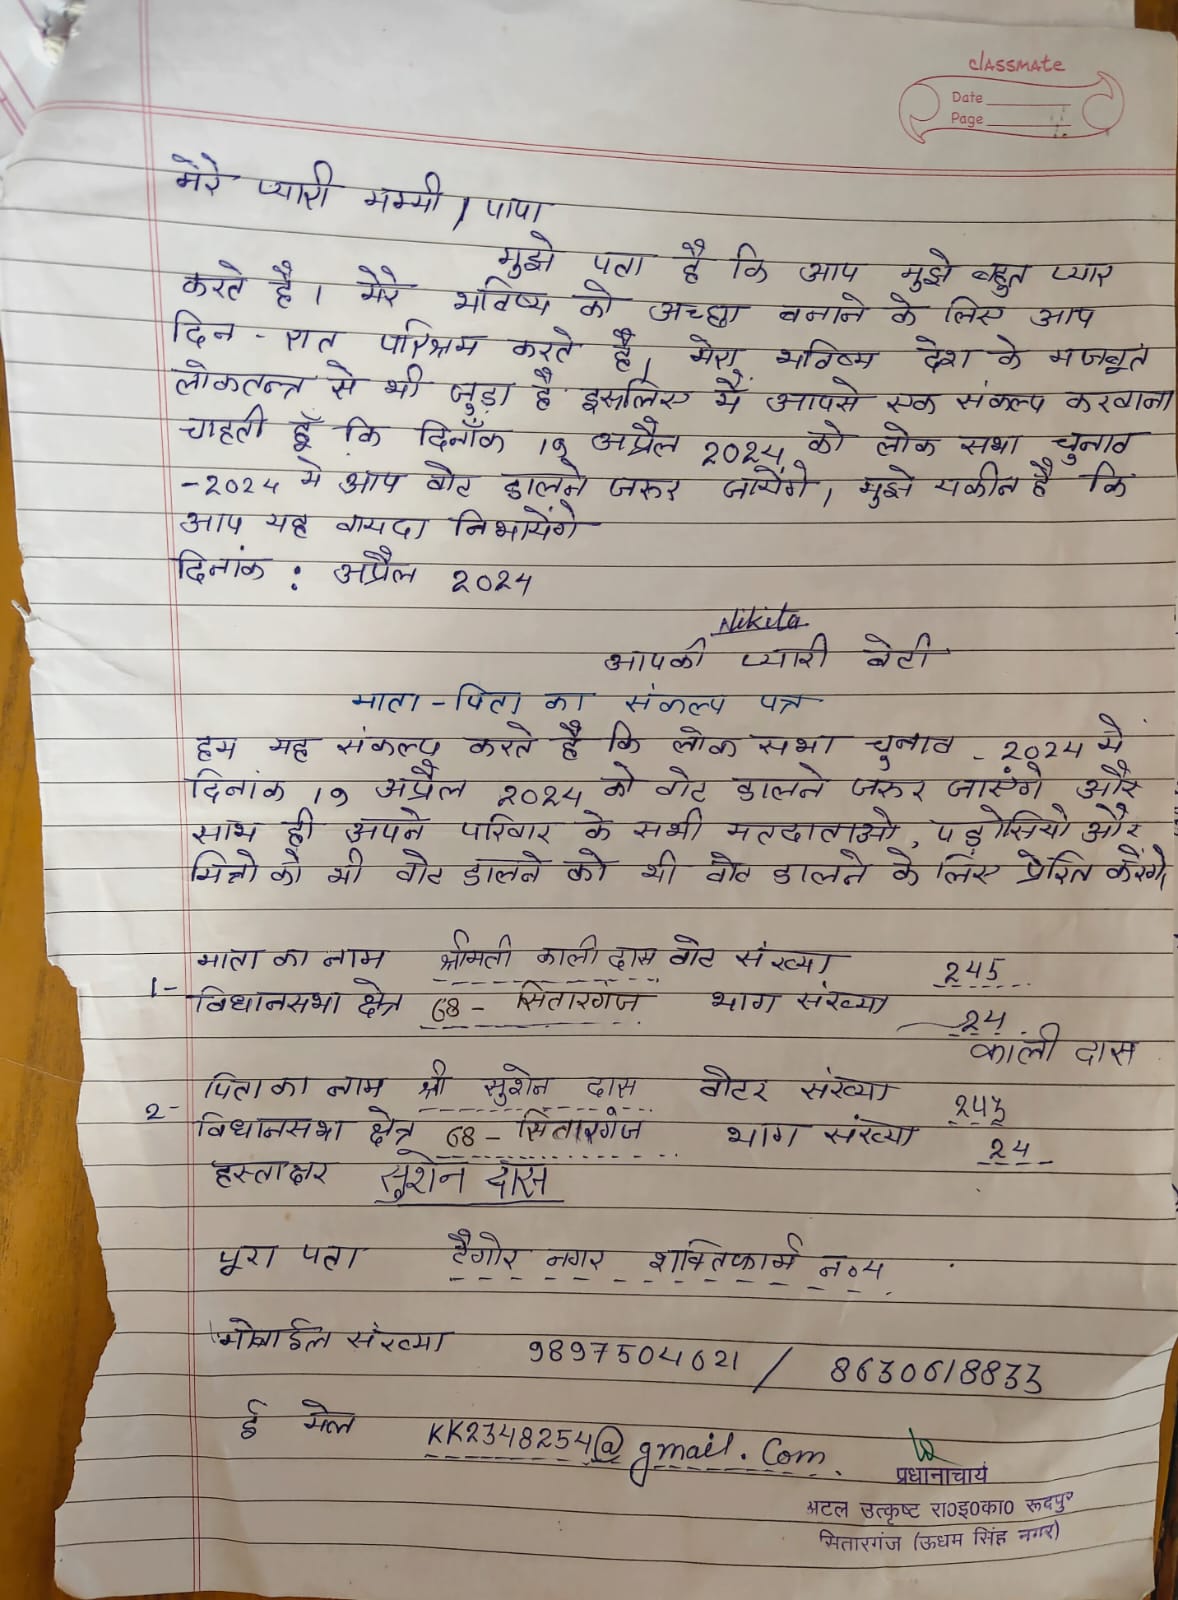 classmate
Date
Page
मेरे प्यारी मम्मी / पापा
मुझे पता है कि आप मुझे बहुत प्यार
करते है। मेरे भविष्य को अच्छा बनाने के लिए आप
दिन - रात परिश्रम करते है। मेरा भविष्य देश के मजबूत
लोकतन्त्र से भी जुड़ा है इसलिए मैं आपसे एक संकल्प करवाना
चाहती हूँ कि दिनाँक 19 अप्रैल 2024 को लोक सभा चुनाव
-2024 मे आप वोट डालने जरुर जायेंगे। मुझे यकीन है कि
आप यह वायदा निभायेंगे
दिनांक : अप्रैल 2024
Nikita
आपकी प्यारी बेटी
माता - पिता का संकल्प पत्र
हम यह संकल्प करते है कि लोक सभा चुनाव - 2024 मे
दिनांक 19 अप्रैल 2024 को वोट डालने जरुर जाएंगे और
साथ ही अपने परिवार के सभी मतदाताओ, पड़ोसियो और
मित्रो को भी वोट डालने को भी वोट डालने के लिए प्रेरित करेंगे।
माता का नाम श्रीमती काली दास वोट संख्या 245
1- विधानसभा क्षेत्र 68 - सितारगंज भाग संख्या 24
काली दास
पिता का नाम श्री सुशेन दास वोटर संख्या 243
2- विधानसभा क्षेत्र 68 - सितारगंज भाग संख्या 24
हस्ताक्षर सुशेन दास
पूरा पता टैगोर नगर शक्तिफार्म न०4
मोबाईल संख्या 9897504621 / 8630618833
ई मेल KK2348254@gmail.com
प्रधानाचार्य
अटल उत्कृष्ट रा0इ0का0 रूदपुर
सितारगंज (ऊधम सिंह नगर)